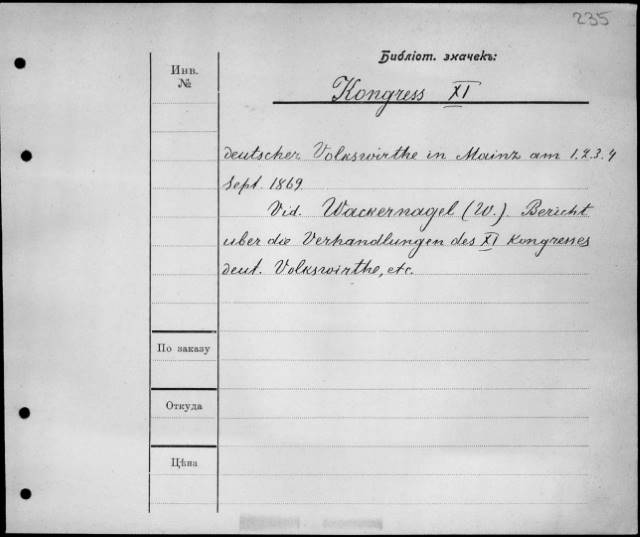 235
Библіот. значекъ:
Инв.
№
Kongress XI
deutscher Volkswirthe in Mainz am 1.2.3.4
Sept. 1869.
Vid. Wackernagel (W.). Bericht
uber die Verhandlungen des XI Kongresses
deut. Volkswirthe, etc.
По заказу
Откуда
Цѣна